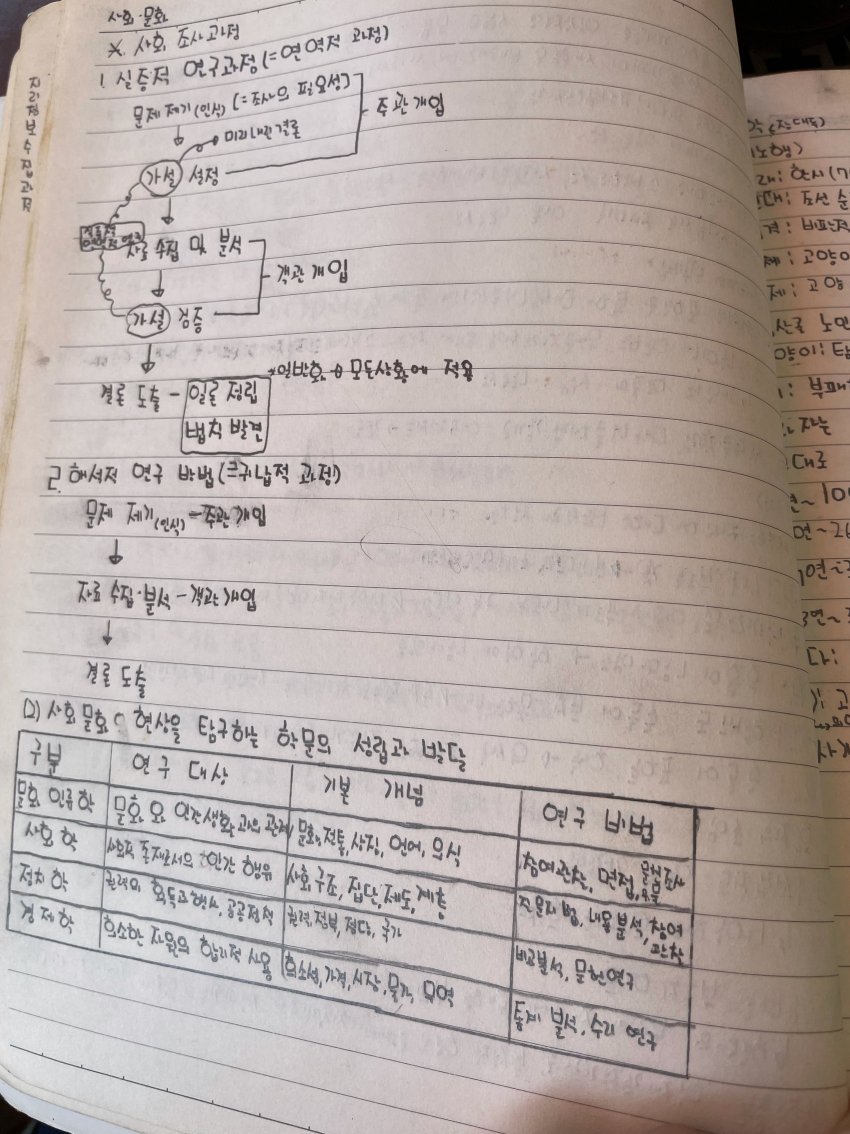 사회·문화
※. 사회 조사과정
1. 실증적 연구과정(=연역적 과정)
문제 제기(인식) (=조사의 필요성)
주관개입
미리내린 결론
가설 설정
자료 수집 및 분석
객관 개입
가설 검증
*일반화 → 모든상황에 적용
결론 도출 - 이론 정립
법칙 발견
2. 해석적 연구 방법(=귀납적 과정)
문제 제기(인식) - 주관개입
자료 수집·분석 - 객관개입
결론 도출
2) 사회 문화 현상을 탐구하는 학문의 성립과 발달
구분 연구 대상 기본 개념 연구 방법
문화 인류학 문화와 인간생활과의 관계 문화, 전통, 상징, 언어, 의식 참여관찰, 면접,
사회학 사회적 존재로서의 인간 행위 사회 구조, 집단, 제도, 계층 질문지법, 내용분석, 참여관찰
정치학 권력의 획득과 행사, 공공정책 권력, 정부, 정당, 국가 비교분석, 문헌연구
경제학 희소한 자원의 합리적 사용 희소성, 가격, 시장, 물가, 무역 통계 분석, 수리 연구
지리정보수집과정